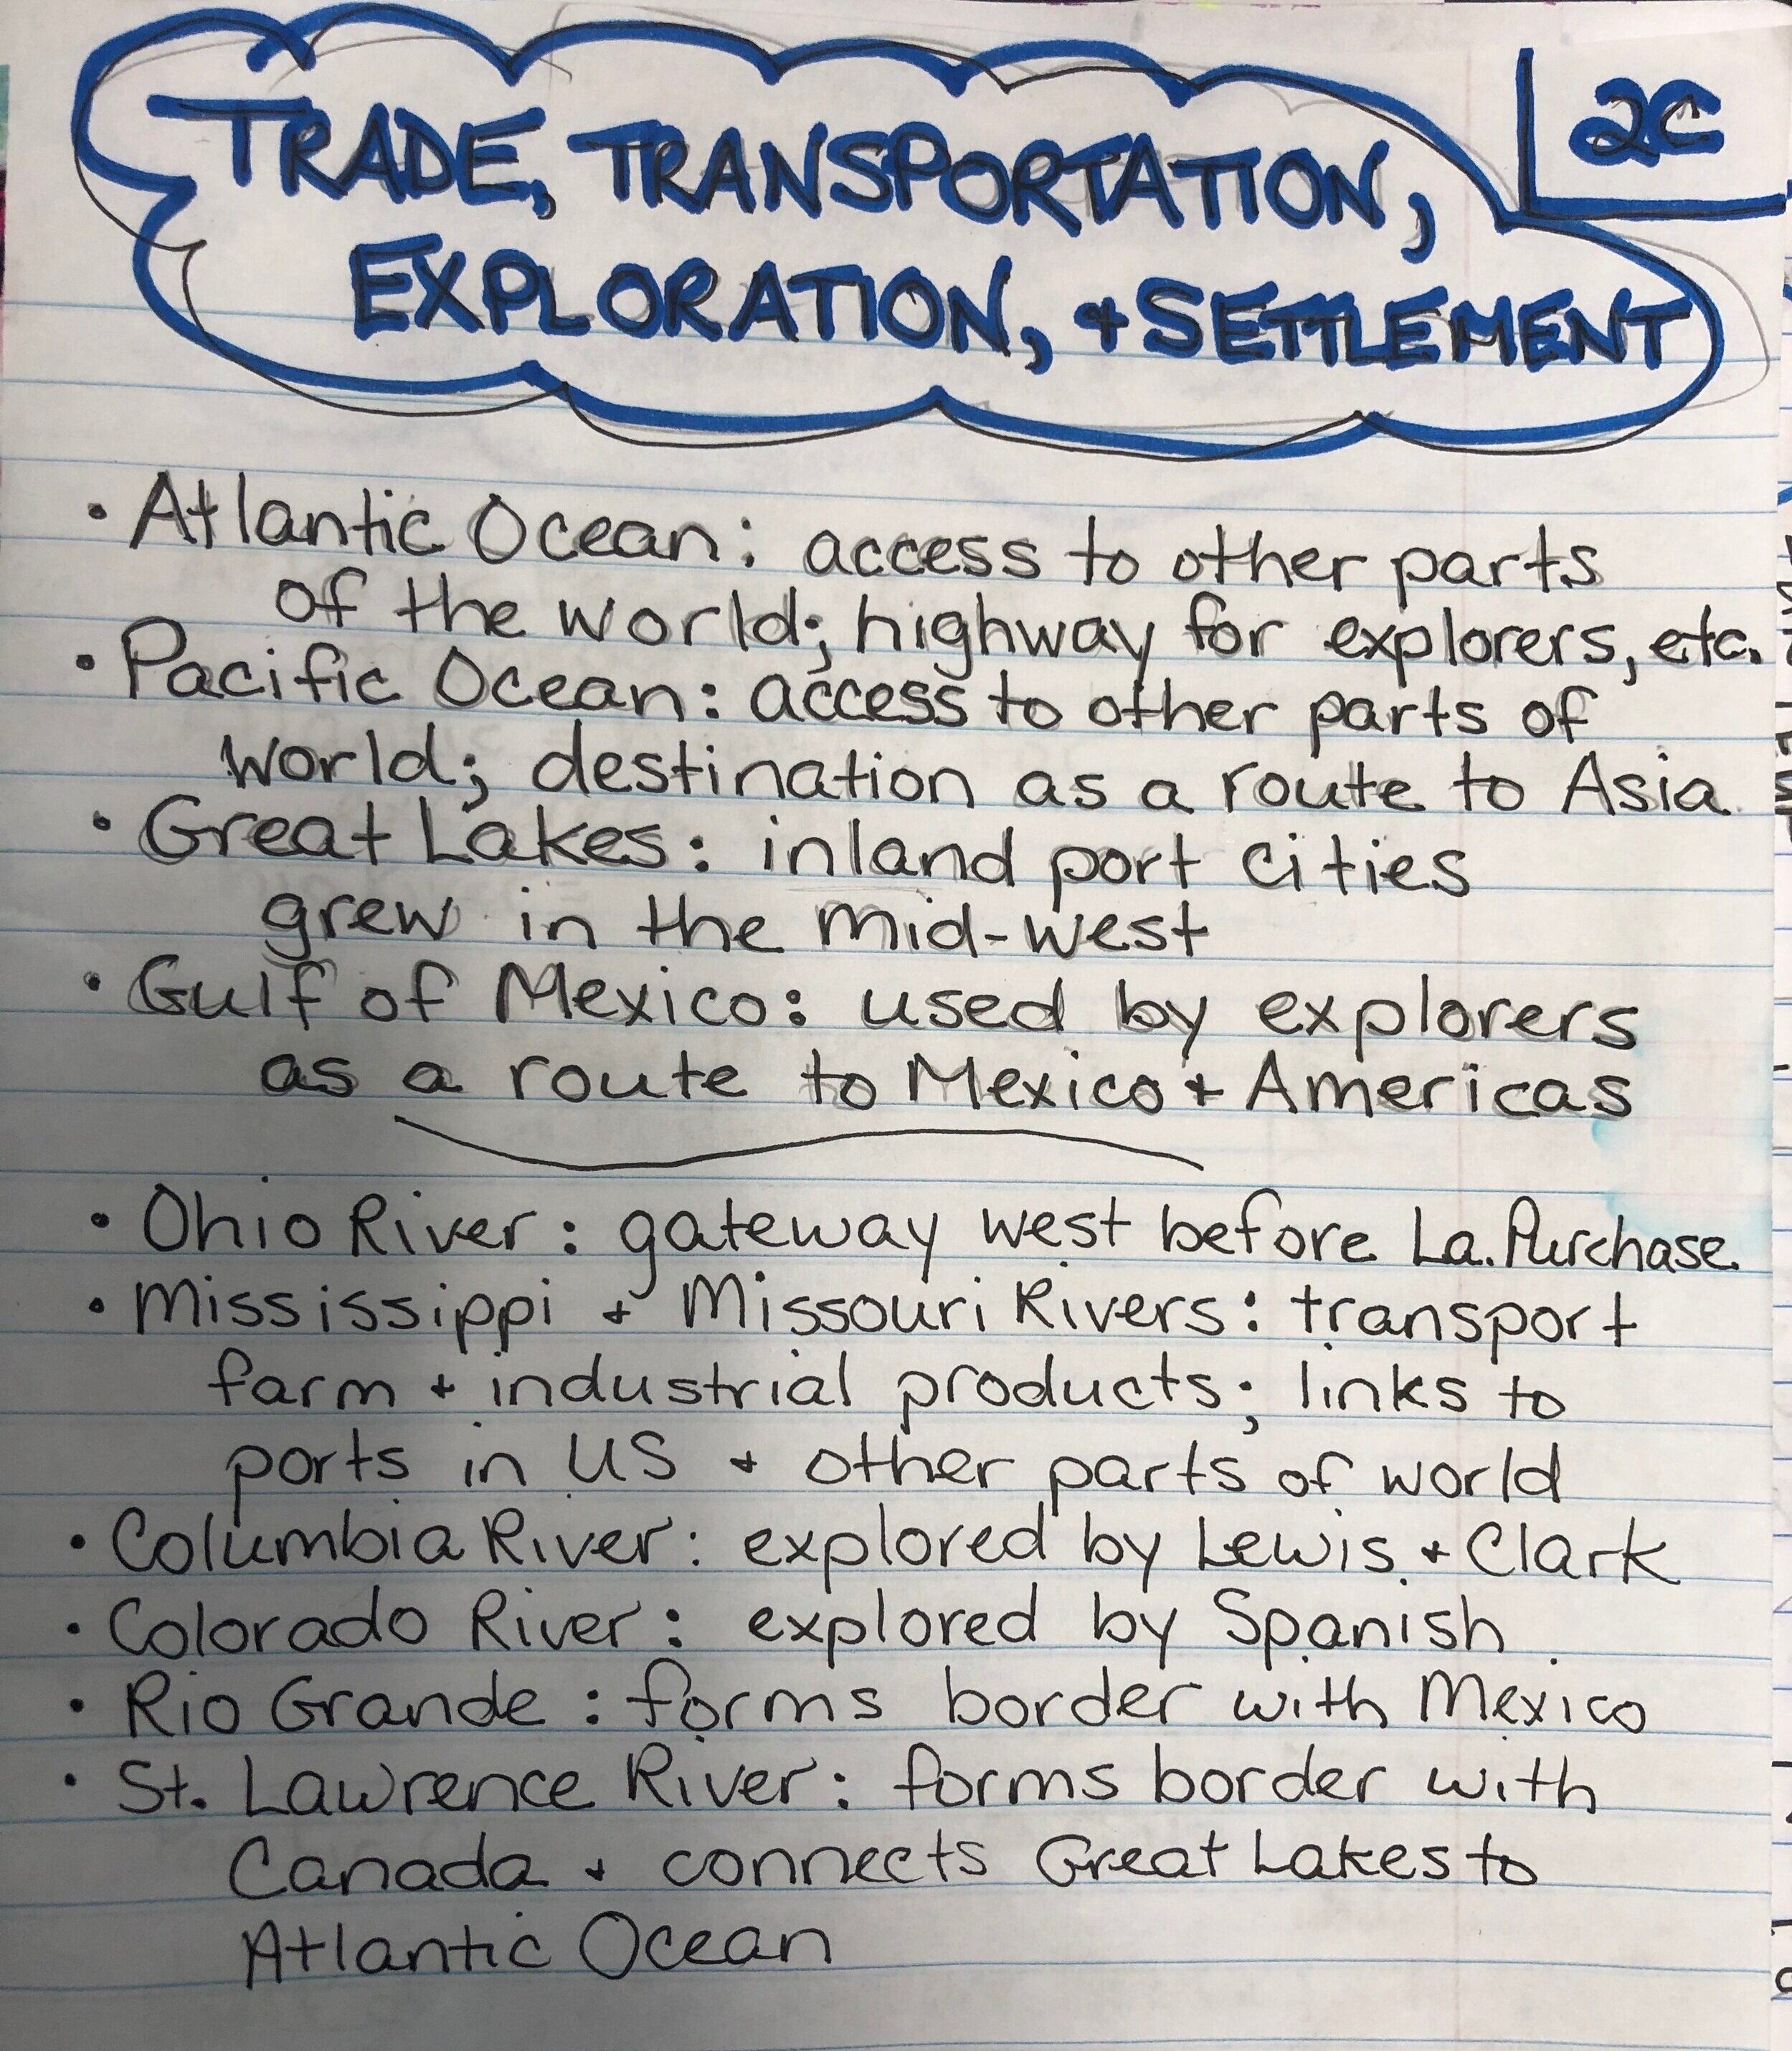 TRADE, TRANSPORTATION,
2C
EXPLORATION, + SETTLEMENT
• Atlantic Ocean: access to other parts
of the world; highway for explorers, etc.
• Pacific Ocean: access to other parts of
world; destination as a route to Asia
• Great Lakes: inland port cities
grew in the mid-west
• Gulf of Mexico: used by explorers
as a route to Mexico + Americas
• Ohio River: gateway west before La. Purchase
• Mississippi + Missouri Rivers: transport
farm + industrial products; links to
ports in US + other parts of world
• Columbia River: explored by Lewis + Clark
• Colorado River: explored by Spanish
• Rio Grande: forms border with Mexico
• St. Lawrence River: forms border with
Canada + connects Great Lakes to
Atlantic Ocean